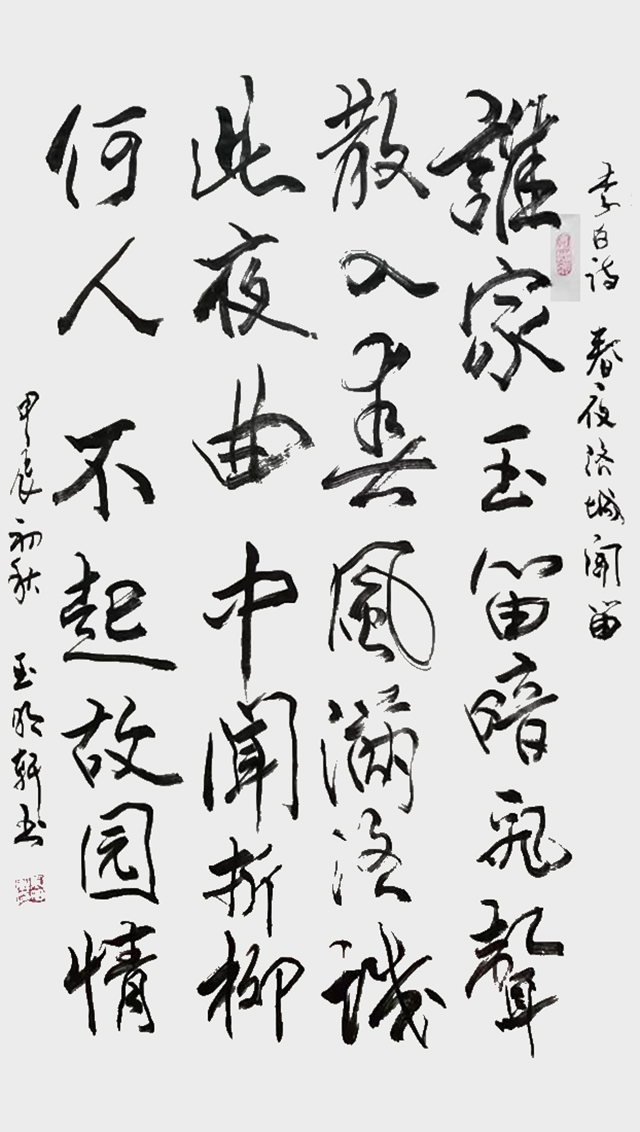 李白诗 春夜洛城闻笛
誰家玉笛暗飛聲
散入春風滿洛城
此夜曲中聞折柳
何人不起故园情
甲辰初秋 轩书